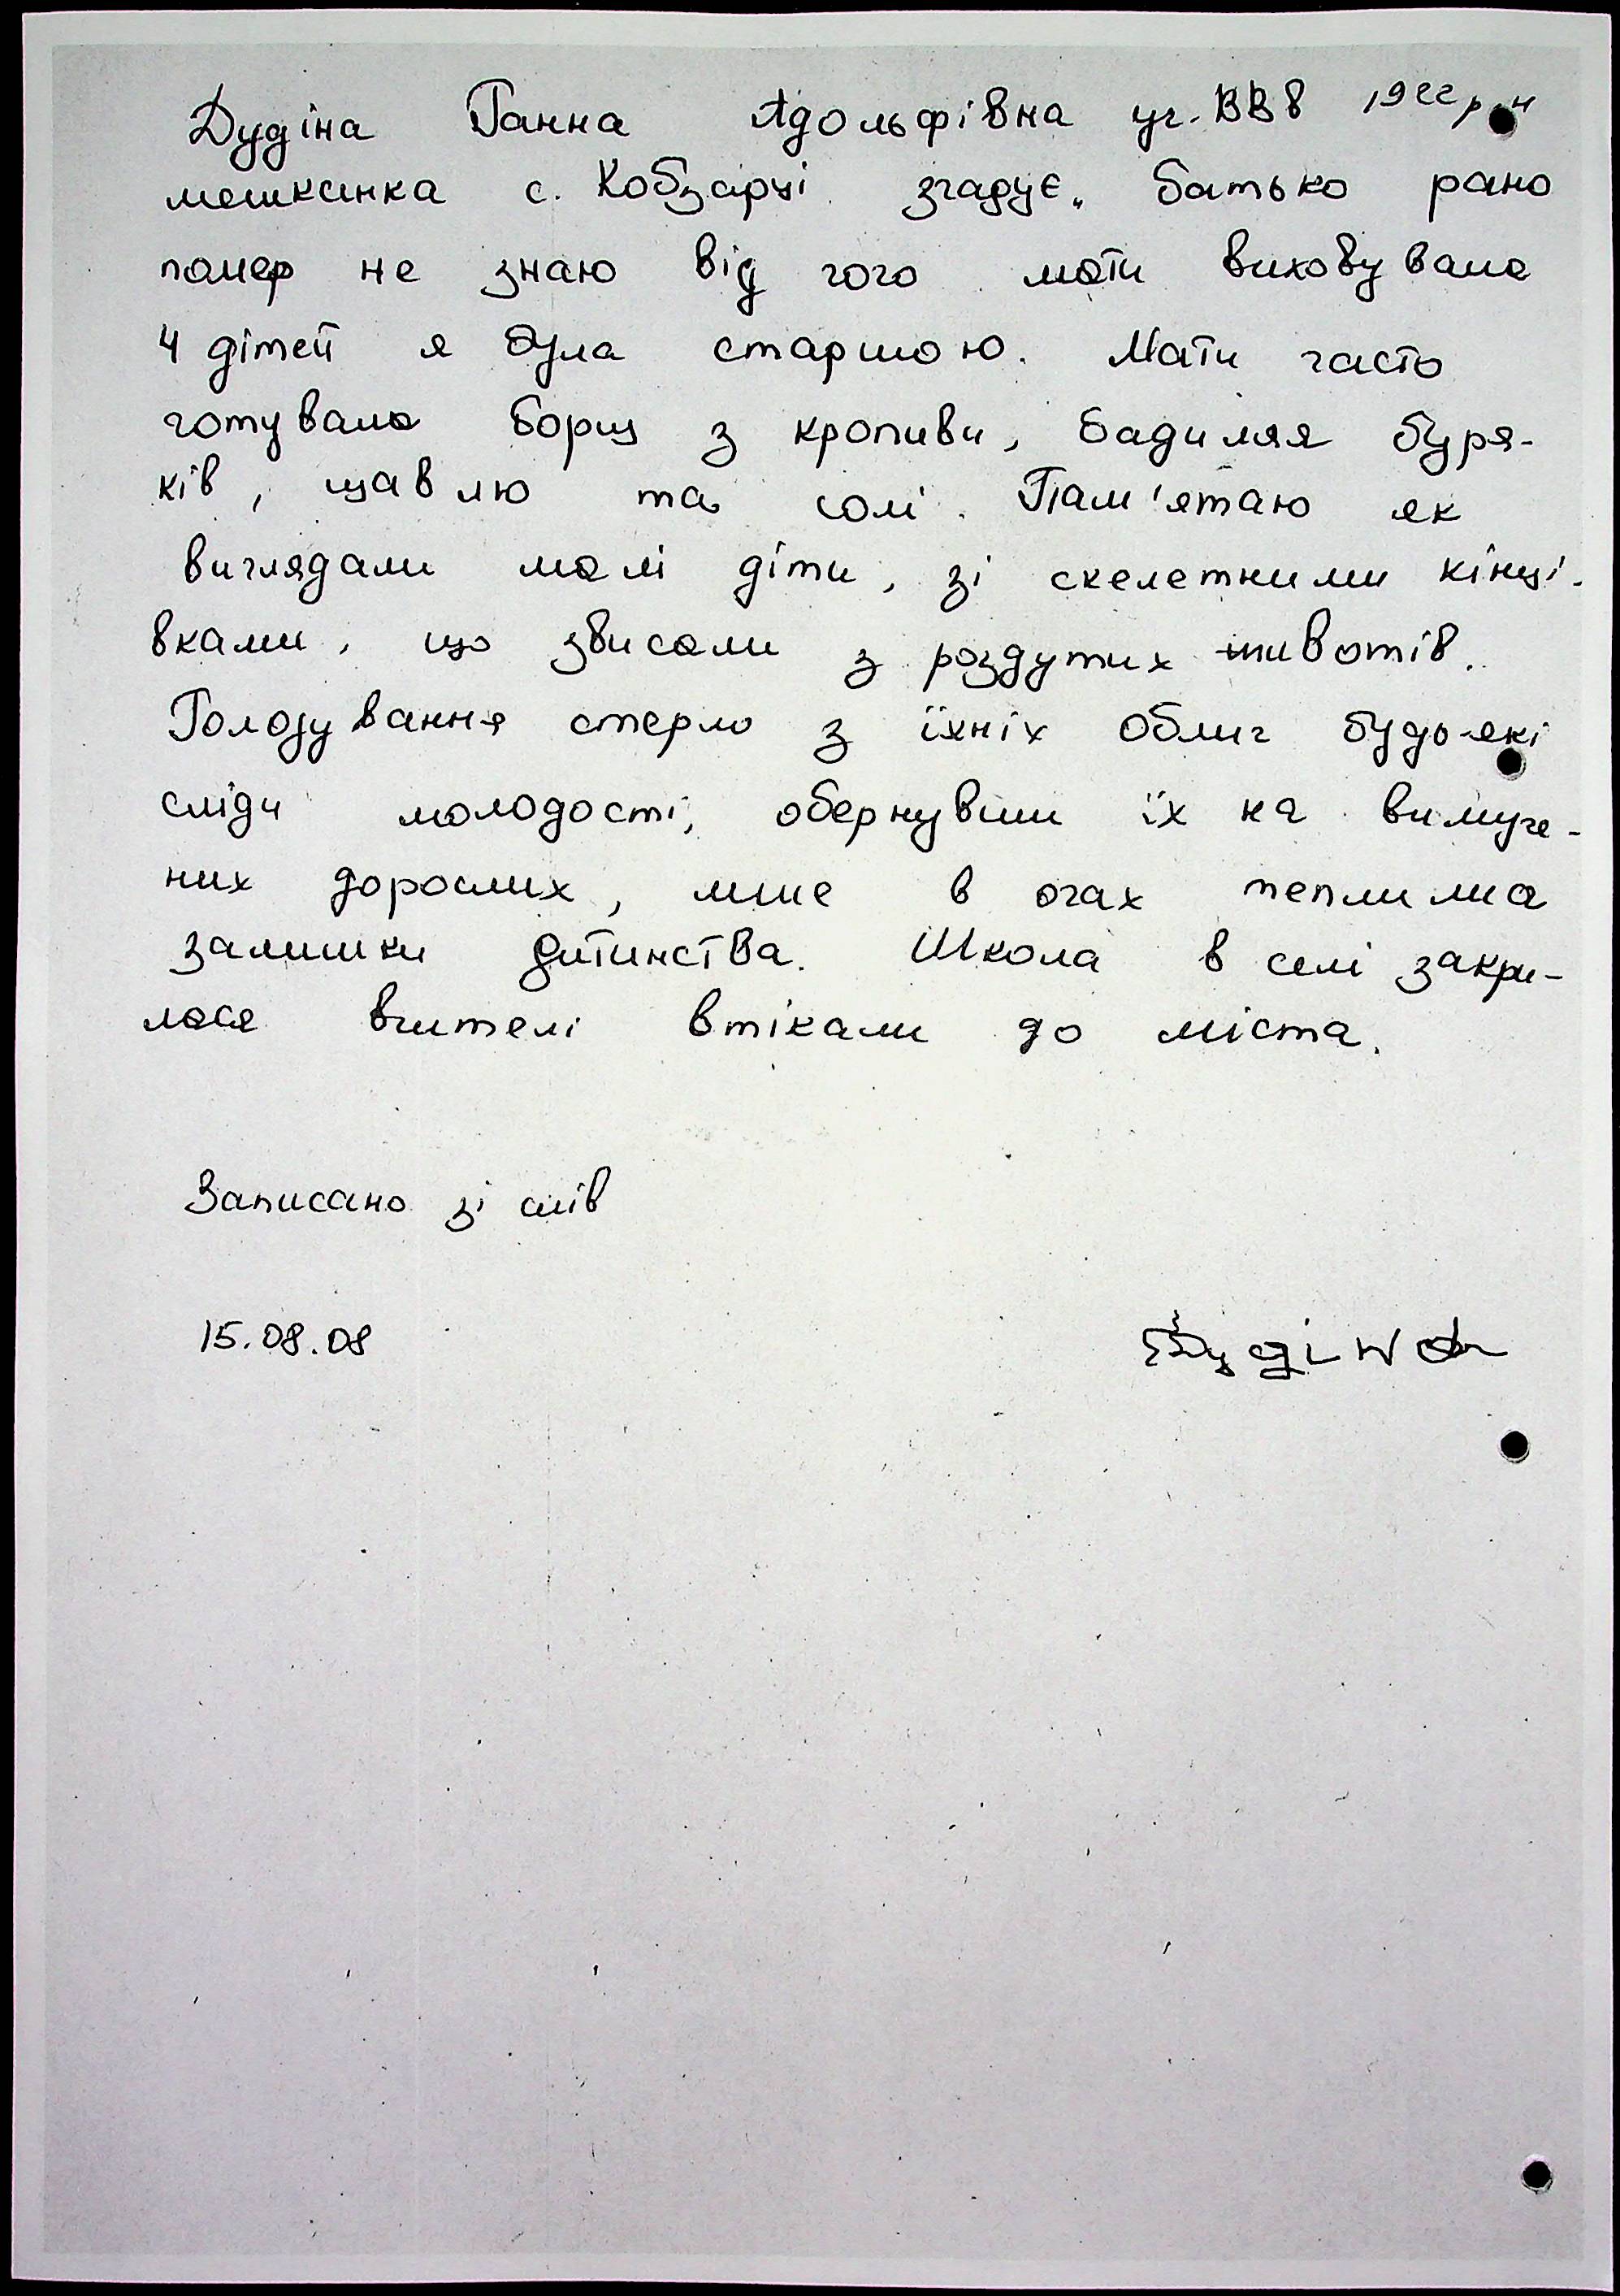 Дудіна Ганна Адольфівна уч. ВВв 1922 р н
мешканка с. Кобзарці згадує „ батько рано
помер не знаю від чого мати виховувала
4 дітей я була старшою. Мати часто
готувала борщ з кропиви, бадилля буря-
ків, щавлю та солі. Пам'ятаю як
виглядали малі діти, зі скелетними кінці-
вками, що звисали з роздутих животів.
Голодування стерло з їхніх облич будь-які
сліди молодості, обернувши їх на вимуче-
них дорослих, лише в очах теплилиа
залишки дитинства. Школа в селі закри-
лася вчителі втікали до міста.
Записано зі слів
15.08.08 Дудіна